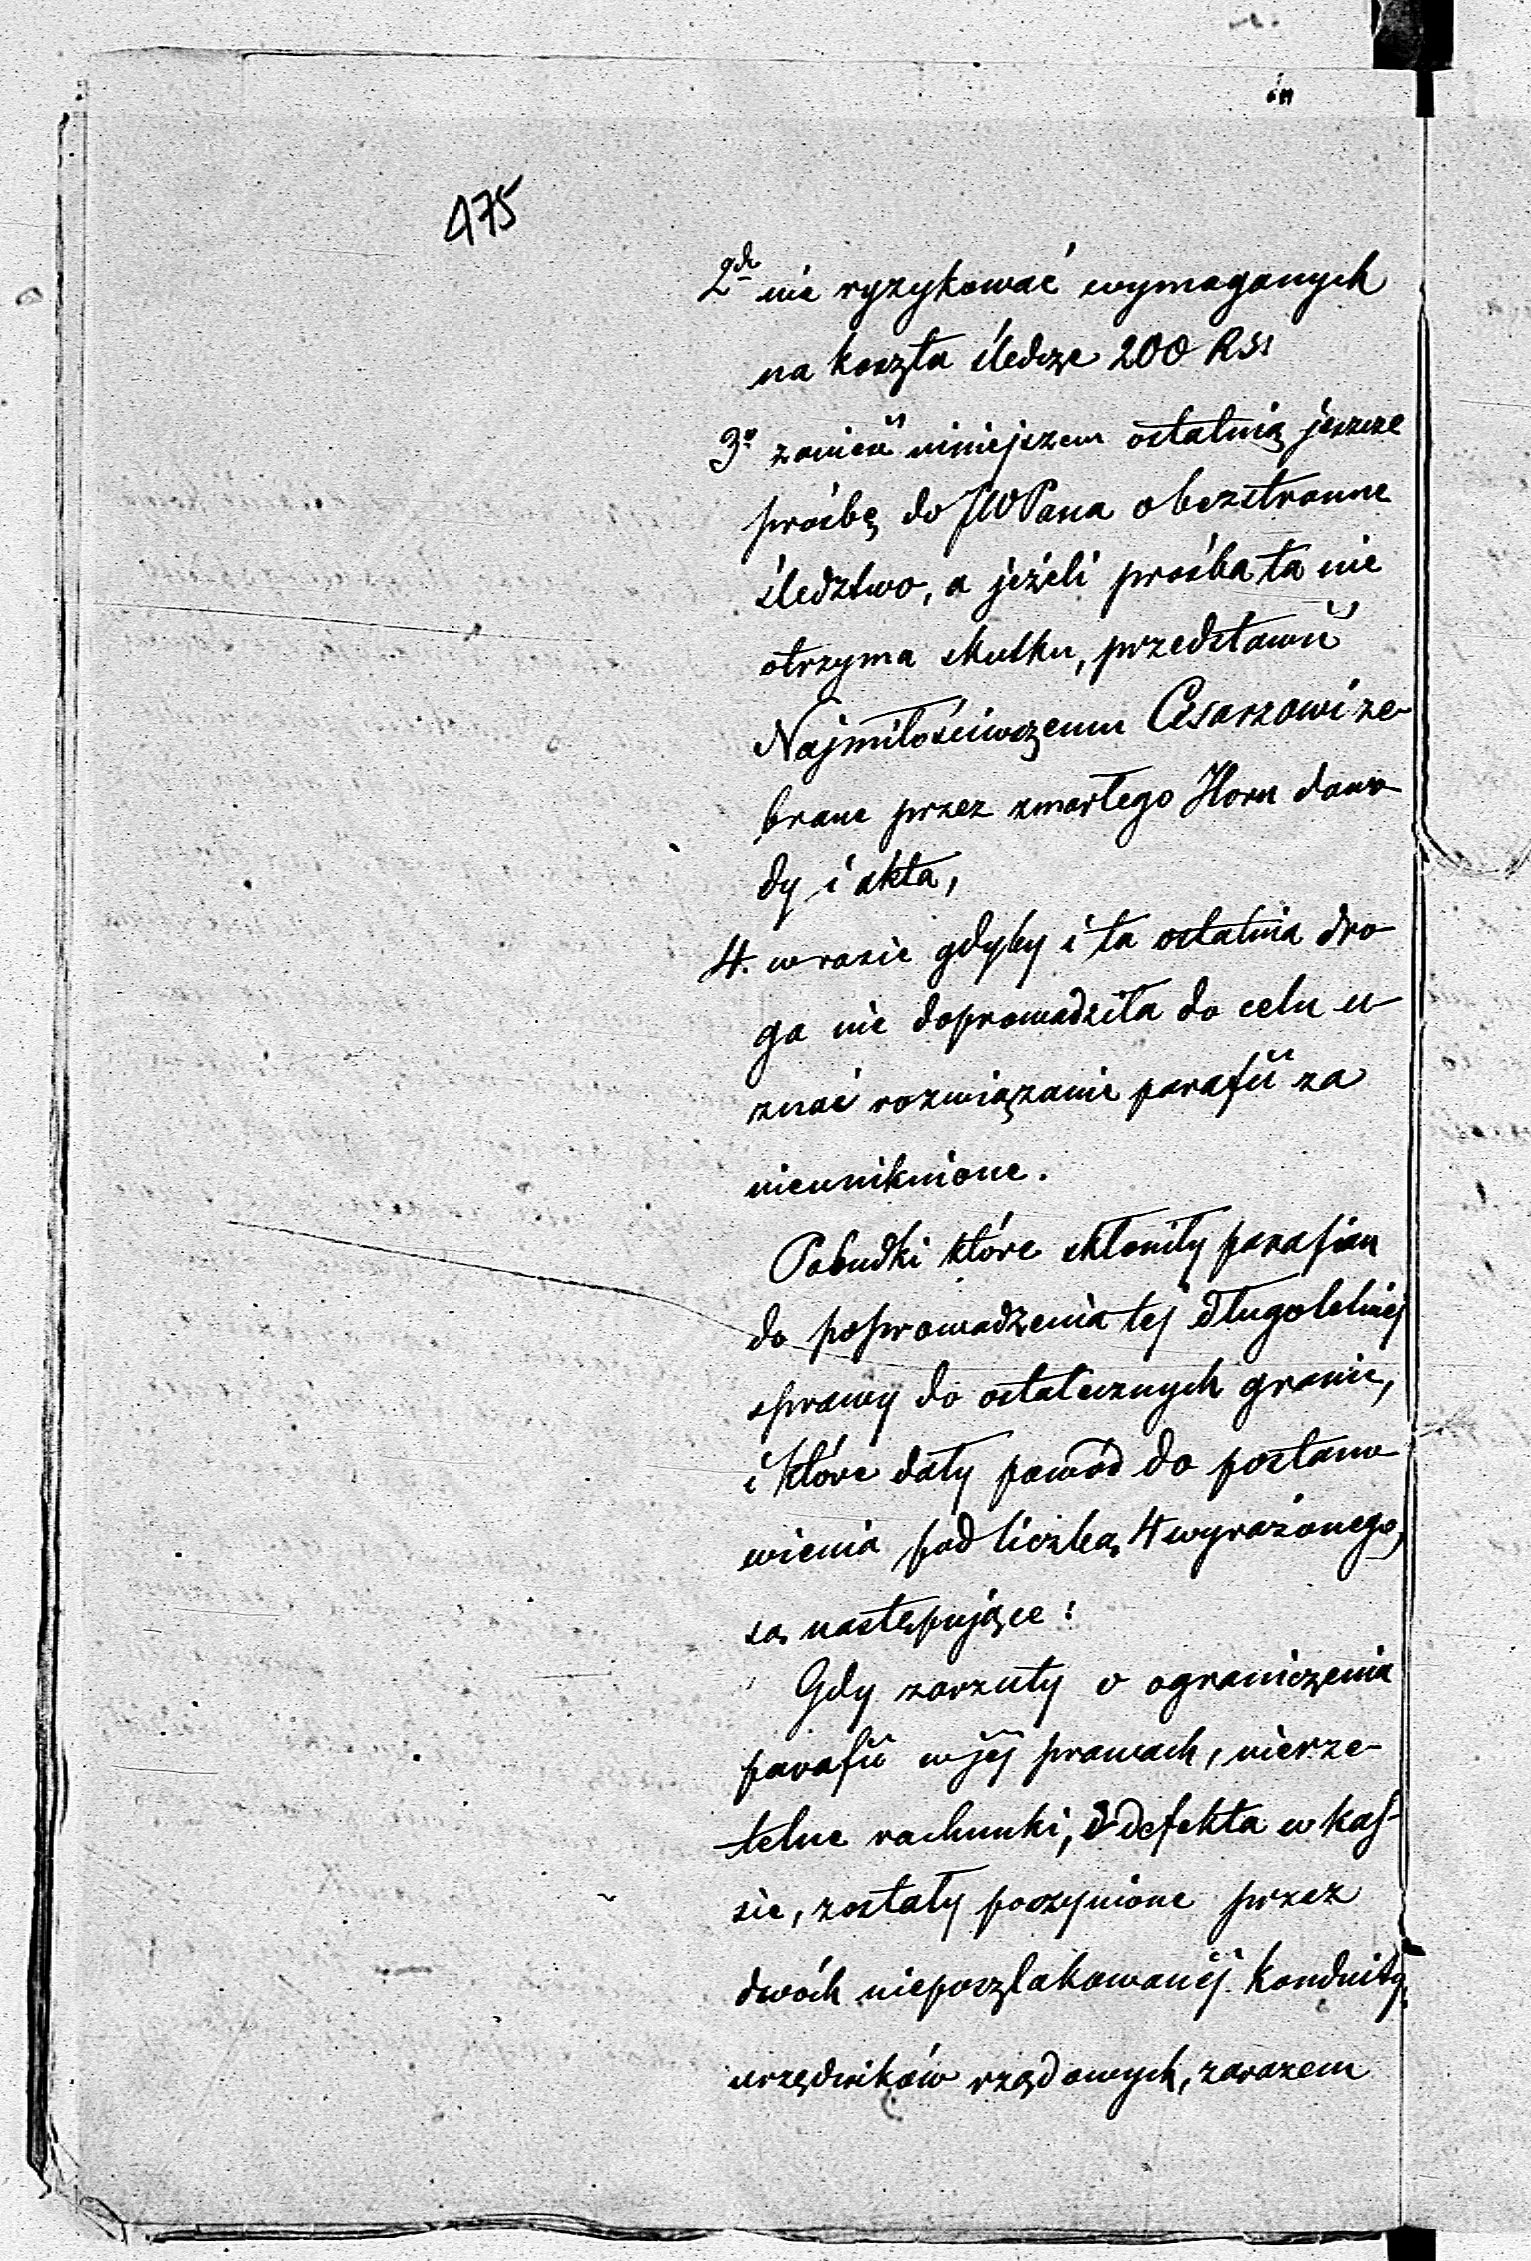 475
2do nie ryzykować wymaganych
na koszta śledcze 200 RSr
3o zanieść niniejszem ostatnią jeszcze
prośbę do JWPana o bezstronne
śledztwo, a jeżeli prośba ta nie
otrzyma skutku, przedstawić
Najmiłościwszemu Cesarzowi ze-
brane przez zmarłego Horn dowo-
dy i akta,
4. w razie gdyby i ta ostatnia dro-
ga nie doprowadziła do celu u-
znać rozwiązanie parafii za
nieuniknione.
Pobudki które skłoniły parafian
do poprowadzenia tej długoletniej
sprawy do ostatecznych granic,
i które dały powód do postano-
wienia pod liczbą 4 wyrażonego,
są następujące:
Gdy zarzuty o ograniczenia
parafii w jej prawach, nierze-
telne rachunki, defekta w kas-
sie, zostały poczynione przez
dwóch nieposzlakowanéj konduity
urzędników rządowych, zarazem